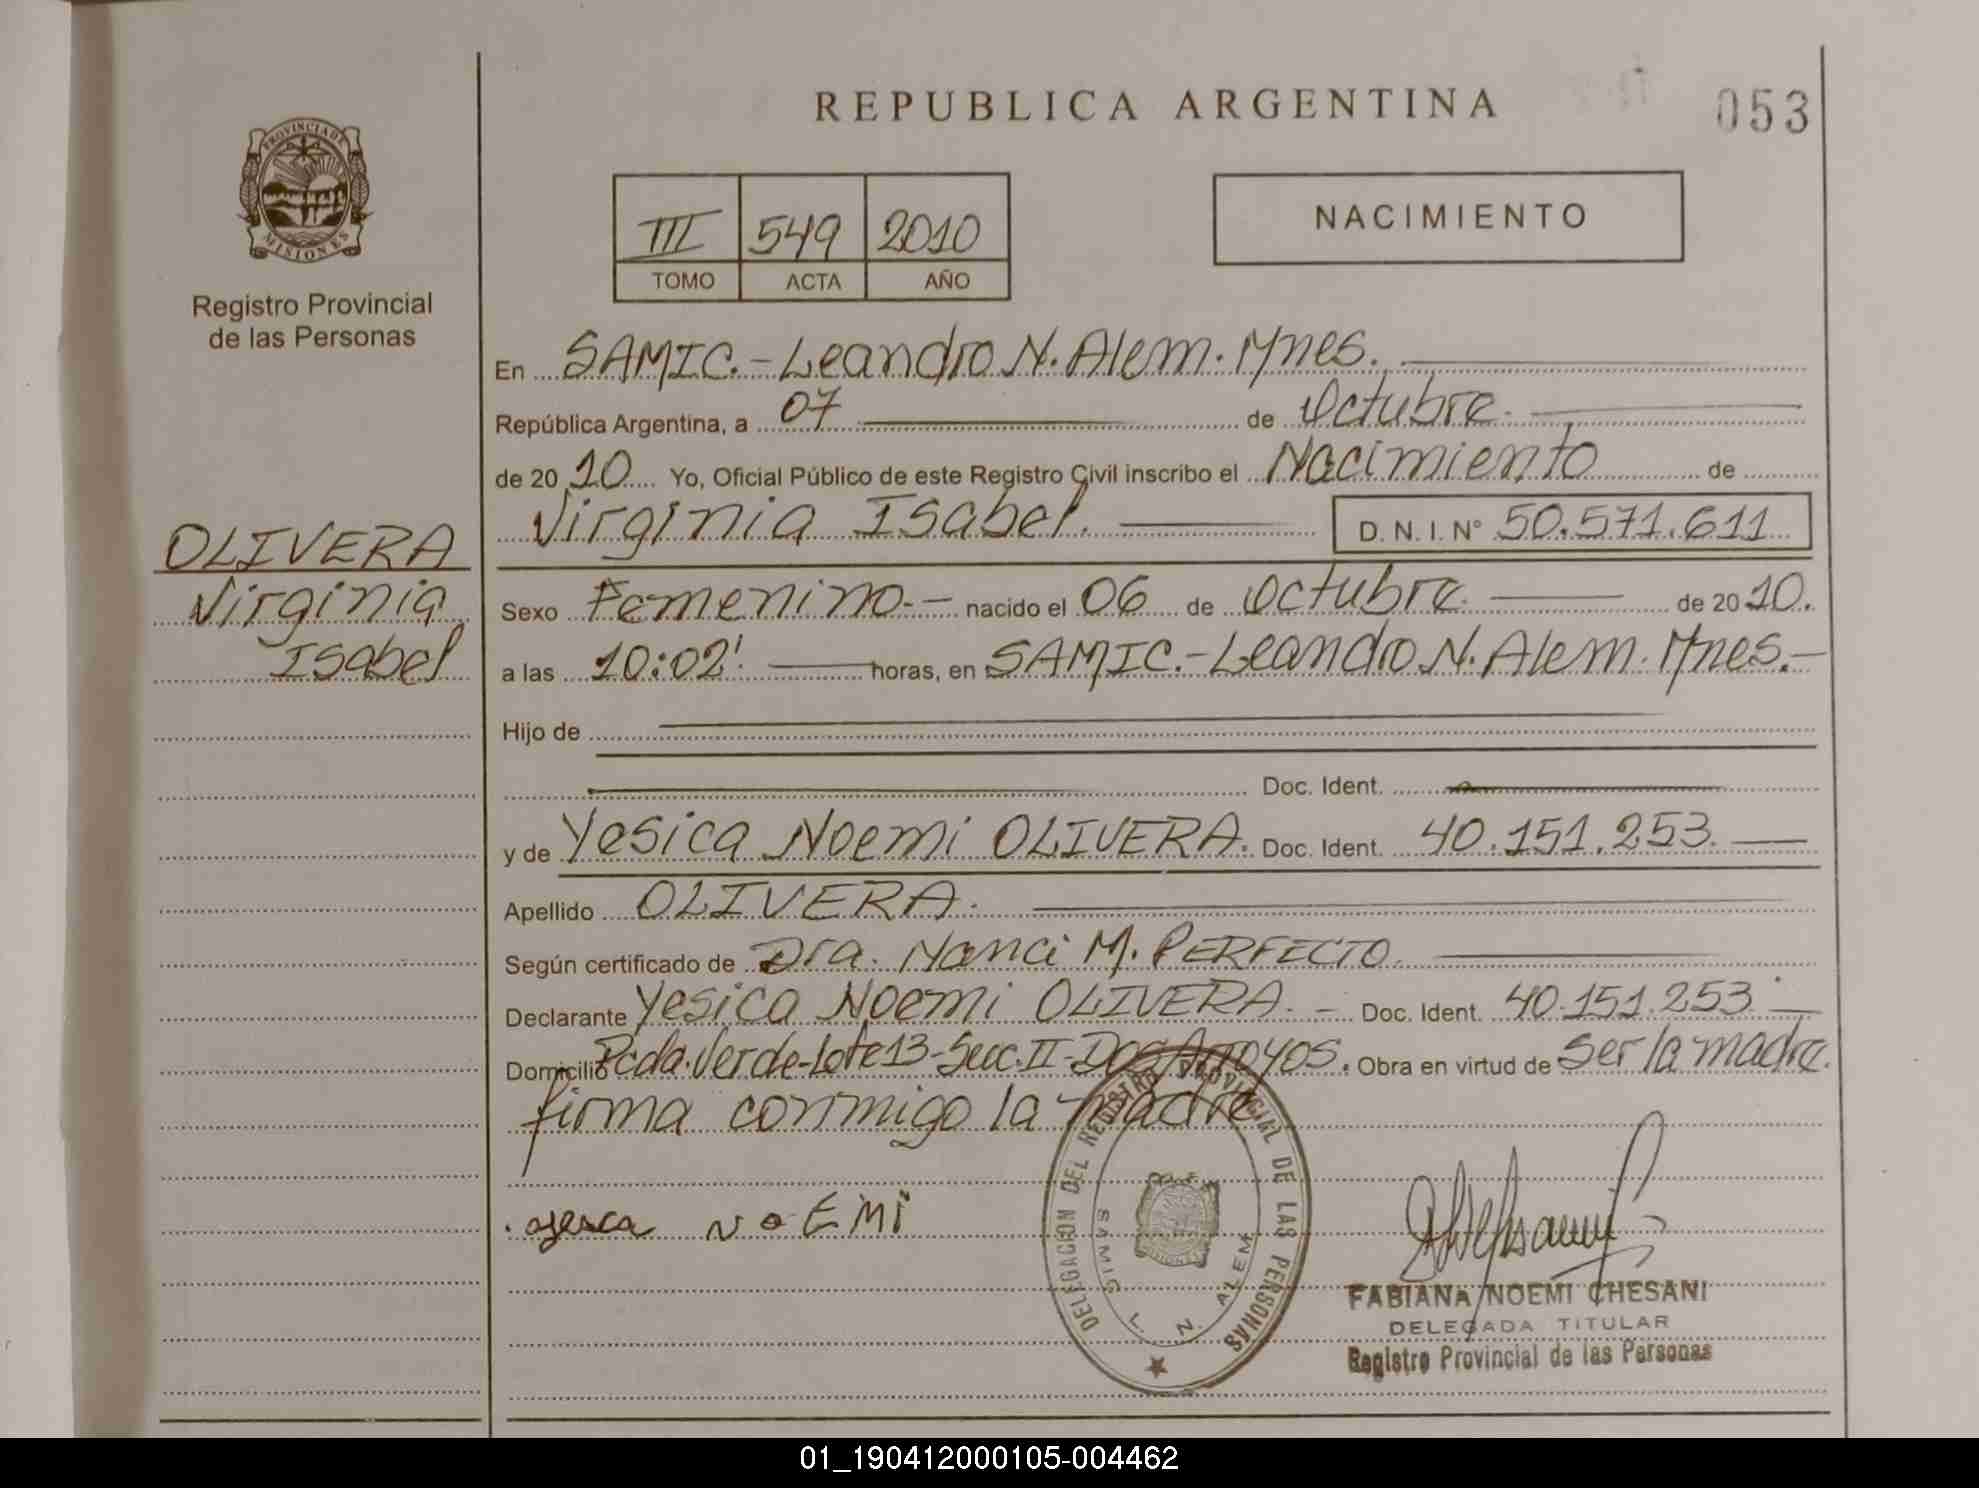 REPUBLICA ARGENTINA
053
PROVINCIA DE
MISIONES
Registro Provincial
de las Personas
III 549 2010
TOMO ACTA AÑO
NACIMIENTO
En SAMIC.-Leandro N. Alem. Mnes.
República Argentina, a 07 de Octubre.
de 2010 Yo, Oficial Público de este Registro Civil inscribo el Nacimiento de
Virginia Isabel. D. N. I. N° 50.571.611
OLIVERA
Virginia
Isabel
Sexo Femenino.- nacido el 06 de Octubre de 2010.
a las 10:02' horas, en SAMIC.-Leandro N. Alem. Mnes.-
Hijo de
Doc. Ident.
y de Yesica Noemi OLIVERA. Doc. Ident. 40.151.253.
Apellido OLIVERA.
Según certificado de Dra. Nanci M. PERFECTO.
Declarante Yesica Noemi OLIVERA. - Doc. Ident. 40.151.253
Domicilio Pcda. Verde-Lote 13-Secc. II-Dos Arroyos. Obra en virtud de ser la madre.
firma conmigo la madre
NOEMi
DELEGACION DEL REGISTRO PROVINCIAL DE LAS PERSONAS
SAMIC L. N. ALEM
FABIANA NOEMI CHESANI
DELEGADA TITULAR
Registro Provincial de las Personas
01_190412000105-004462